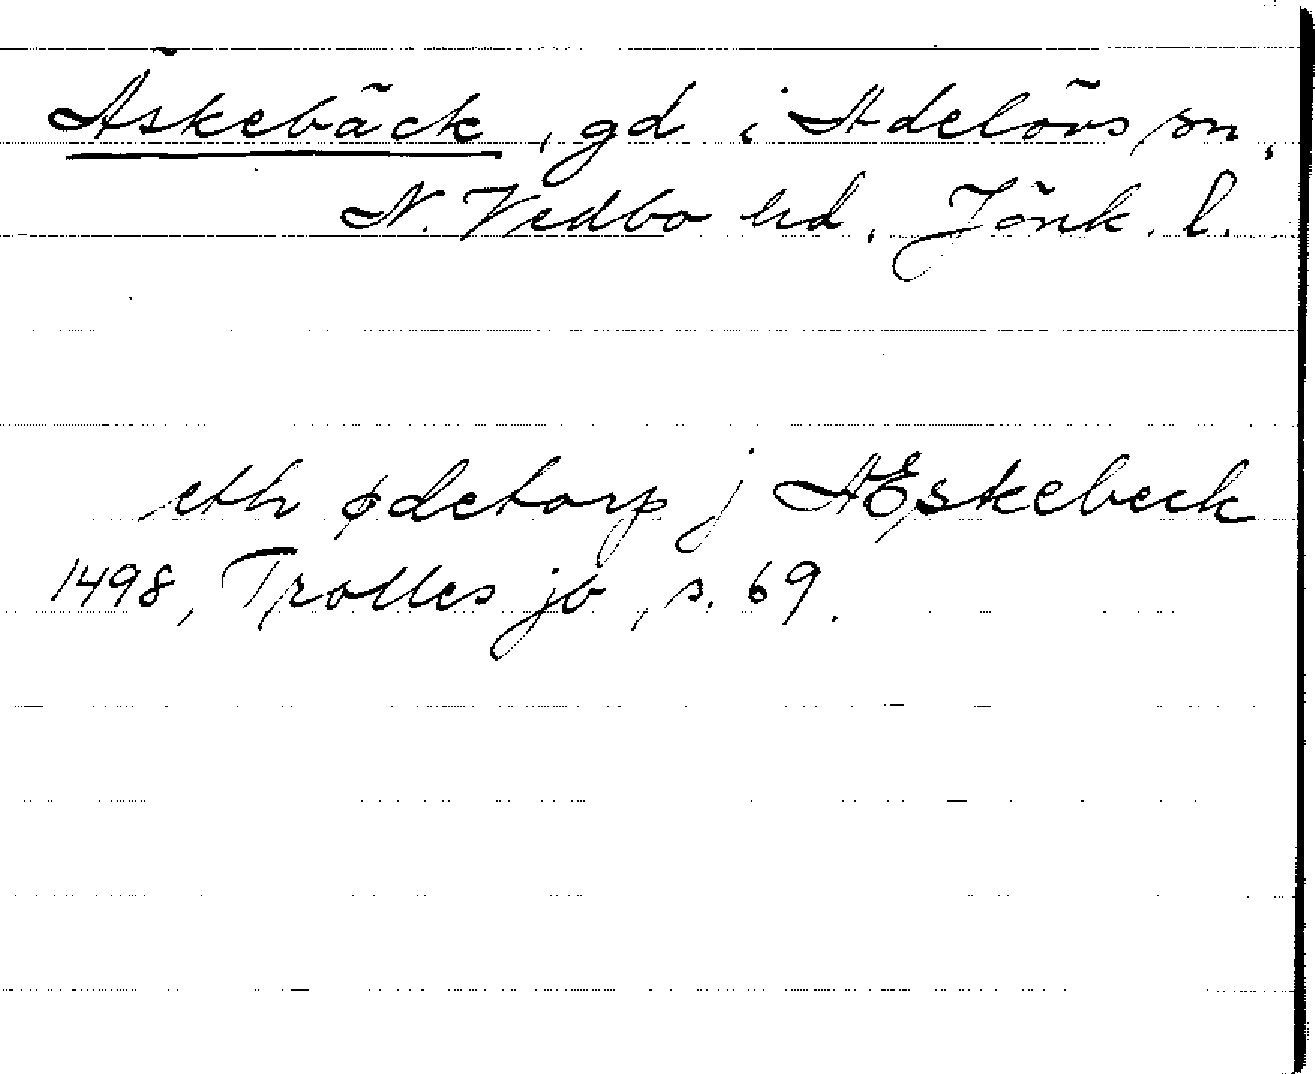 Äskebäck, gd i Adelövs sn,
N. Vedbo hd, Jönk. l.
eth ødetorp j AEskebeck
1498, Trolles jb, s. 69.